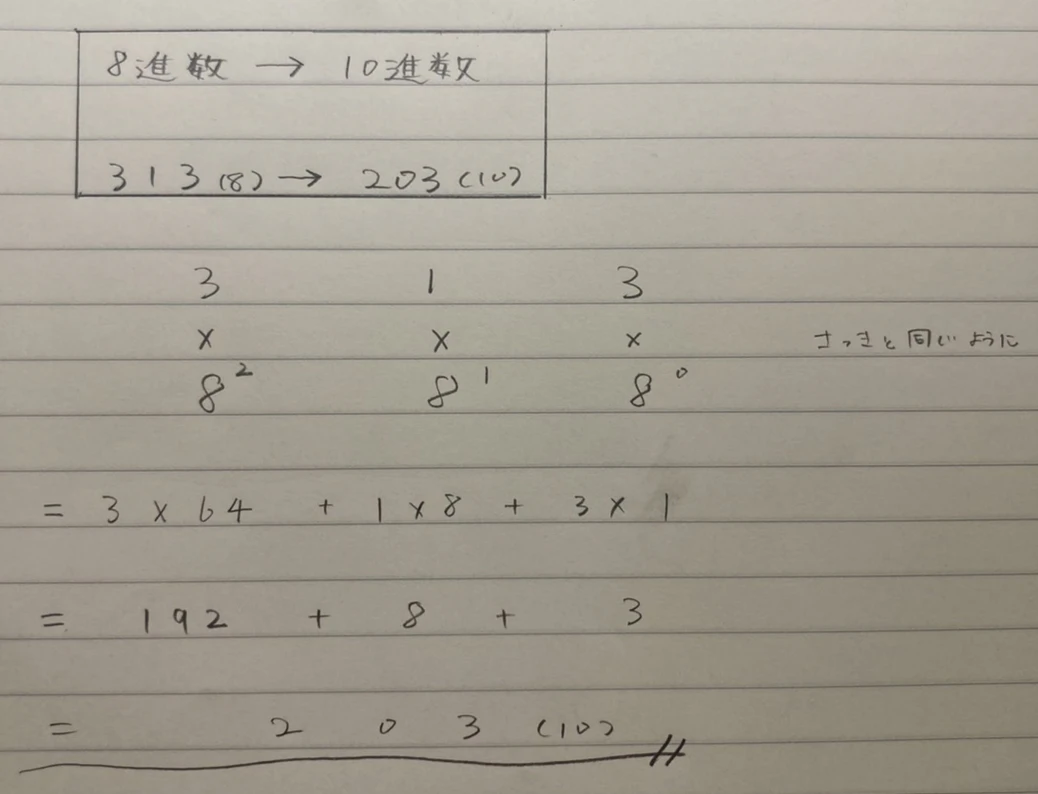 8進数 → 10進数
313(8) → 203(10)
3 1 3
× × × さっきと同じように
8² 8¹ 8⁰
= 3 × 64 + 1 × 8 + 3 × 1
= 192 + 8 + 3
= 203(10)